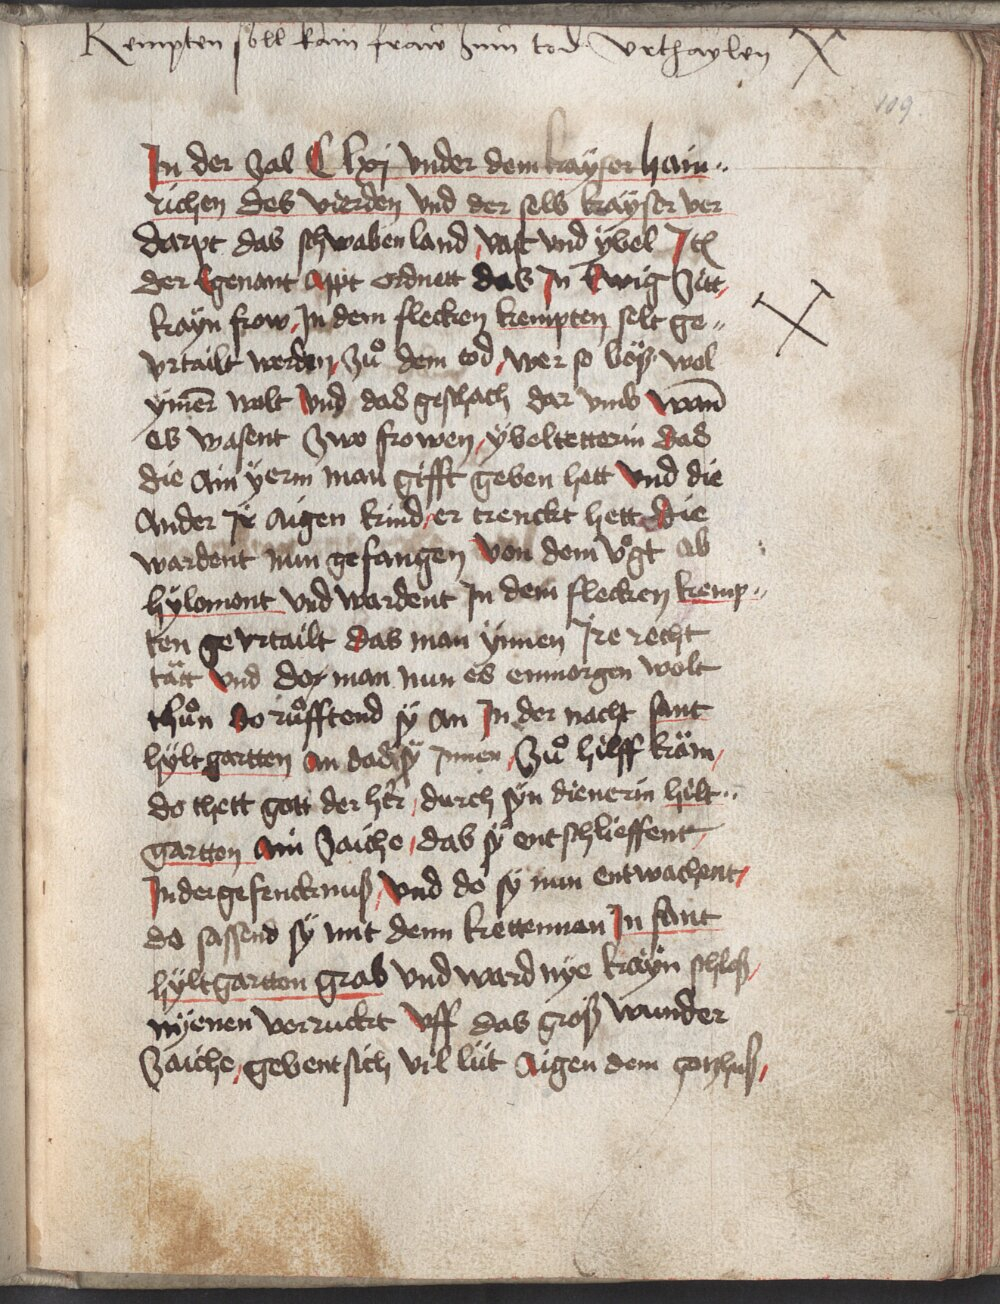 Kempten soll kain fraw zum tod vrthaylen
109.
In der zal C lxj vnder dem kayser hain¬
richen des vierden vnd der selb kayser ver
darpt das schwaben land, vast vnd ÿbel Itē
der Egenant Appt ordnett das In Ewig zitt,
kayn frow, In dem flecken kempten solt ge¬
vrtailt werden, zů dem tod, wer so böß wol
ÿmēr wolt vnd das geschach dar vmb wann
es wasent zwo frowen, ÿbeltetterin das
die Ain ÿerm man gifft geben hett vnd die
Ander Ir Aigen kind, er trenckt hett die
wardent nun gefangen von dem vogt Ab
hÿlomont vnd wardent In dem flecken kemp¬
ten ge vrtailt das man ÿnnen Ire recht
tätt vnd do man nun es enmorgen wolt
thůn do růfftend sÿ an In der nacht sant
hÿltgartten An das sÿ Innen, zů hilff käm,
do thett gott der her, durch sÿn dienerin hilt¬
gartten Ain zaiche, das sÿ entschlieffent
In der gefencknuß, vnd do sÿ nun entwachent,
do sassend sÿ mit denn kettennan In sant
hÿltgartten grab vnd ward nye kayn schloß,
nÿenen verruckt vff das groß wunder
zaiche, gebent sich vil lüt Aigen dem gotzhuß,